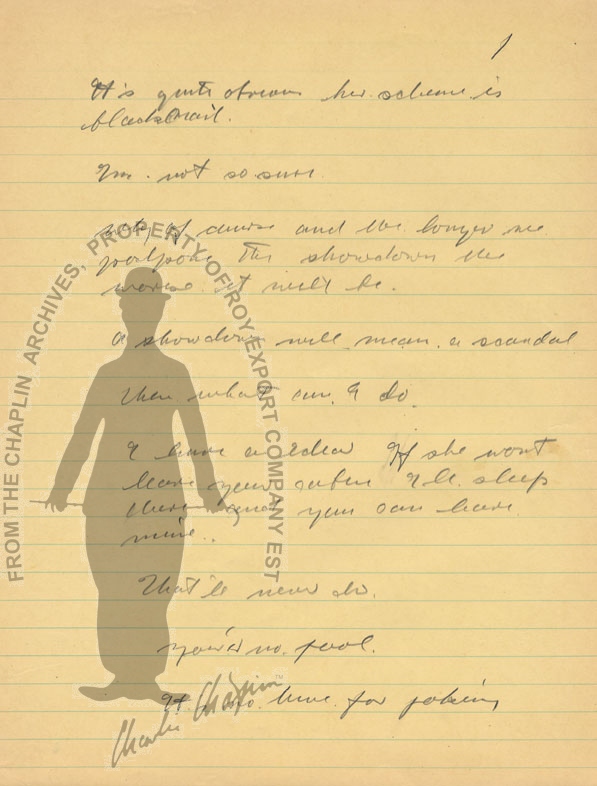 1
It's quite obvious her scheme is
blackmail.
I'm not so sure
of course and the longer we
postpone the showdown the
worse it will be.
a showdown will mean a scandal
then what can I do
I have an idea If she wont
leave your cabin I'll sleep
there and you can have
mine.
That'll never do.
you're no fool.
It no time for joking
FROM THE CHAPLIN ARCHIVES, PROPERTY OF ROY EXPORT COMPANY EST
Charlie Chaplin